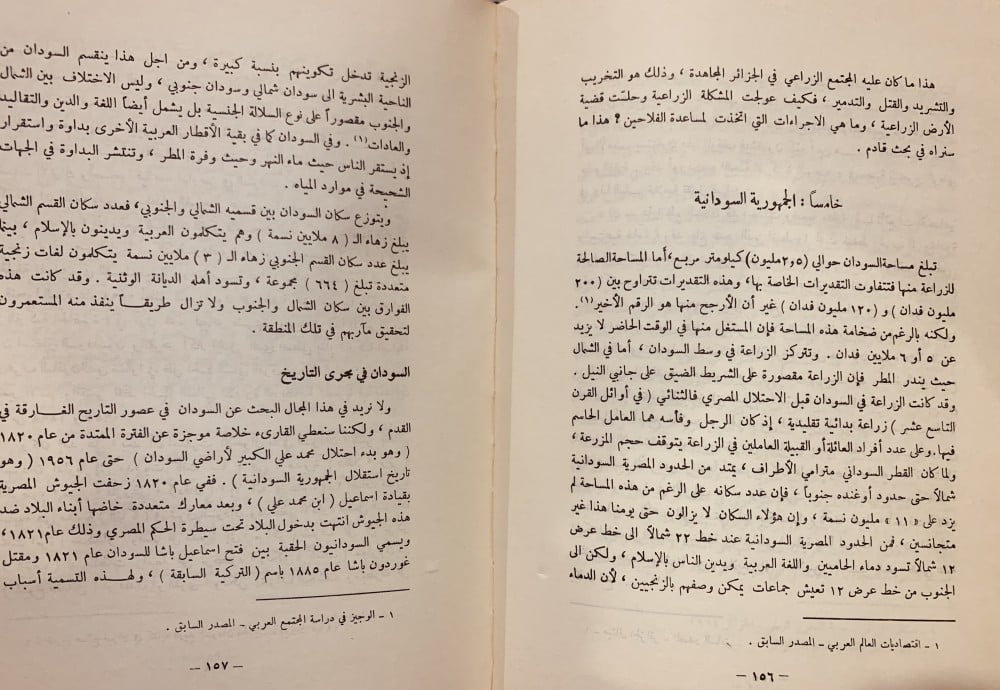 هذا ما كان عليه المجتمع الزراعي في الجزائر المجاهدة ، وذلك هو التخريب
والتشريد والقتل والتدمير ، فكيف عولجت المشكلة الزراعية وحلّت قضية
الأرض الزراعية ، وما هي الاجراءات التي اتخذت لمساعدة الفلاحين ? هذا ما
سنراه في بحث قادم .
خامساً : الجمهورية السودانية
تبلغ مساحة السودان حوالي (٢,٥ مليون) كيلومتر مربع، أما المساحة الصالحة
للزراعة منها فتتفاوت التقديرات الخاصة بها، وهذه التقديرات تتراوح بين (٢٠٠
مليون فدان ) و (١٢٠ مليون فدان ) غير أن الأرجح منها هو الرقم الأخير(١).
ولكنه بالرغم من ضخامة هذه المساحة فإن المستغل منها في الوقت الحاضر لا يزيد
عن ٥ أو ٦ ملايين فدان . وتتركز الزراعة في وسط السودان ، أما في الشمال
حيث يندر المطر فإن الزراعة مقصورة على الشريط الضيق على جانبي النيل .
وقد كانت الزراعة في السودان قبل الاحتلال المصري فالثنائي ( في أوائل القرن
التاسع عشر ) زراعة بدائية تقليدية ، إذ كان الرجل وفأسه هما العامل الحاسم
فيها. وعلى عدد أفراد العائلة أو القبيلة العاملين في الزراعة يتوقف حجم المزرعة ،
ولما كان القطر السوداني مترامي الأطراف ، يمتد من الحدود المصرية السودانية
شمالاً حتى حدود أوغنده جنوباً ، فإن عدد سكانه على الرغم من هذه المساحة لم
يزد على « ١١ » مليون نسمة ، وإن هؤلاء السكان لا يزالون حتى يومنا هذا غير
متجانسين ، فمن الحدود المصرية السودانية عند خط ٢٢ شمالاً الى خط عرض
١٢ شمالاً تسود دماء الحاميين واللغة العربية ويدين الناس بالإسلام ، ولكن الى
الجنوب من خط عرض ١٢ تعيش جماعات يمكن وصفهم بالزنجيين ، لأن الدماء
١ - اقتصاديات العالم العربي - المصدر السابق .
- ١٥٦ -
الزنجية تدخل تكوينهم بنسبة كبيرة ، ومن اجل هذا ينقسم السودان من
الناحية البشرية الى سودان شمالي وسودان جنوبي ، وليس الاختلاف بين الشمال
والجنوب مقصوراً على نوع السلالة الجنسية بل يشمل أيضاً اللغة والدين والتقاليد
والعادات(١) . وفي السودان كما في بقية الأقطار العربية الأخرى بداوة واستقرار
إذ يستقر الناس حيث ماء النهر وحيث وفرة المطر ، وتنتشر البداوة في الجهات
الشحيحة في موارد المياه .
ويتوزع سكان السودان بين قسميه الشمالي والجنوبي، فعدد سكان القسم الشمالي
يبلغ زهاء الـ ( ٨ ملايين نسمة ) وهم يتكلمون العربية ويدينون بالإسلام ، بينما
يبلغ عدد سكان القسم الجنوبي زهاء الـ ( ٣ ) ملايين نسمة يتكلمون لغات زنجية
متعددة تبلغ ( ٦٦٤ ) مجموعة ، وتسود أهله الديانة الوثنية . وقد كانت هذه
الفوارق بين سكان الشمال والجنوب ولا تزال طريقاً ينفذ منه المستعمرون
لتحقيق مآربهم في تلك المنطقة .
السودان في مجرى التاريخ
ولا نريد في هذا المجال البحث عن السودان في عصور التاريخ الغارقة في
القدم ، ولكننا سنعطي القارىء خلاصة موجزة عن الفترة الممتدة من عام ١٨٢٠
( وهو بدء احتلال محمد علي الكبير لأراضي السودان ) حتى عام ١٩٥٦ ( وهو
تاريخ استقلال الجمهورية السودانية ) . ففي عام ١٨٢٠ زحفت الجيوش المصرية
بقيادة اسماعيل ( ابن محمد علي ) ، وبعد معارك متعددة خاضها أبناء البلاد ضد
هذه الجيوش انتهت بدخول البلاد تحت سيطرة الحكم المصري وذلك عام ١٨٢١،
ويسمي السودانيون الحقبة بين فتح اسماعيل باشا للسودان عام ١٨٢١ ومقتل
غوردون باشا عام ١٨٨٥ باسم ( التركية السابقة ) ، ولهذه التسمية أسباب
١ - الوجيز في دراسة المجتمع العربي - المصدر السابق .
- ١٥٧ -